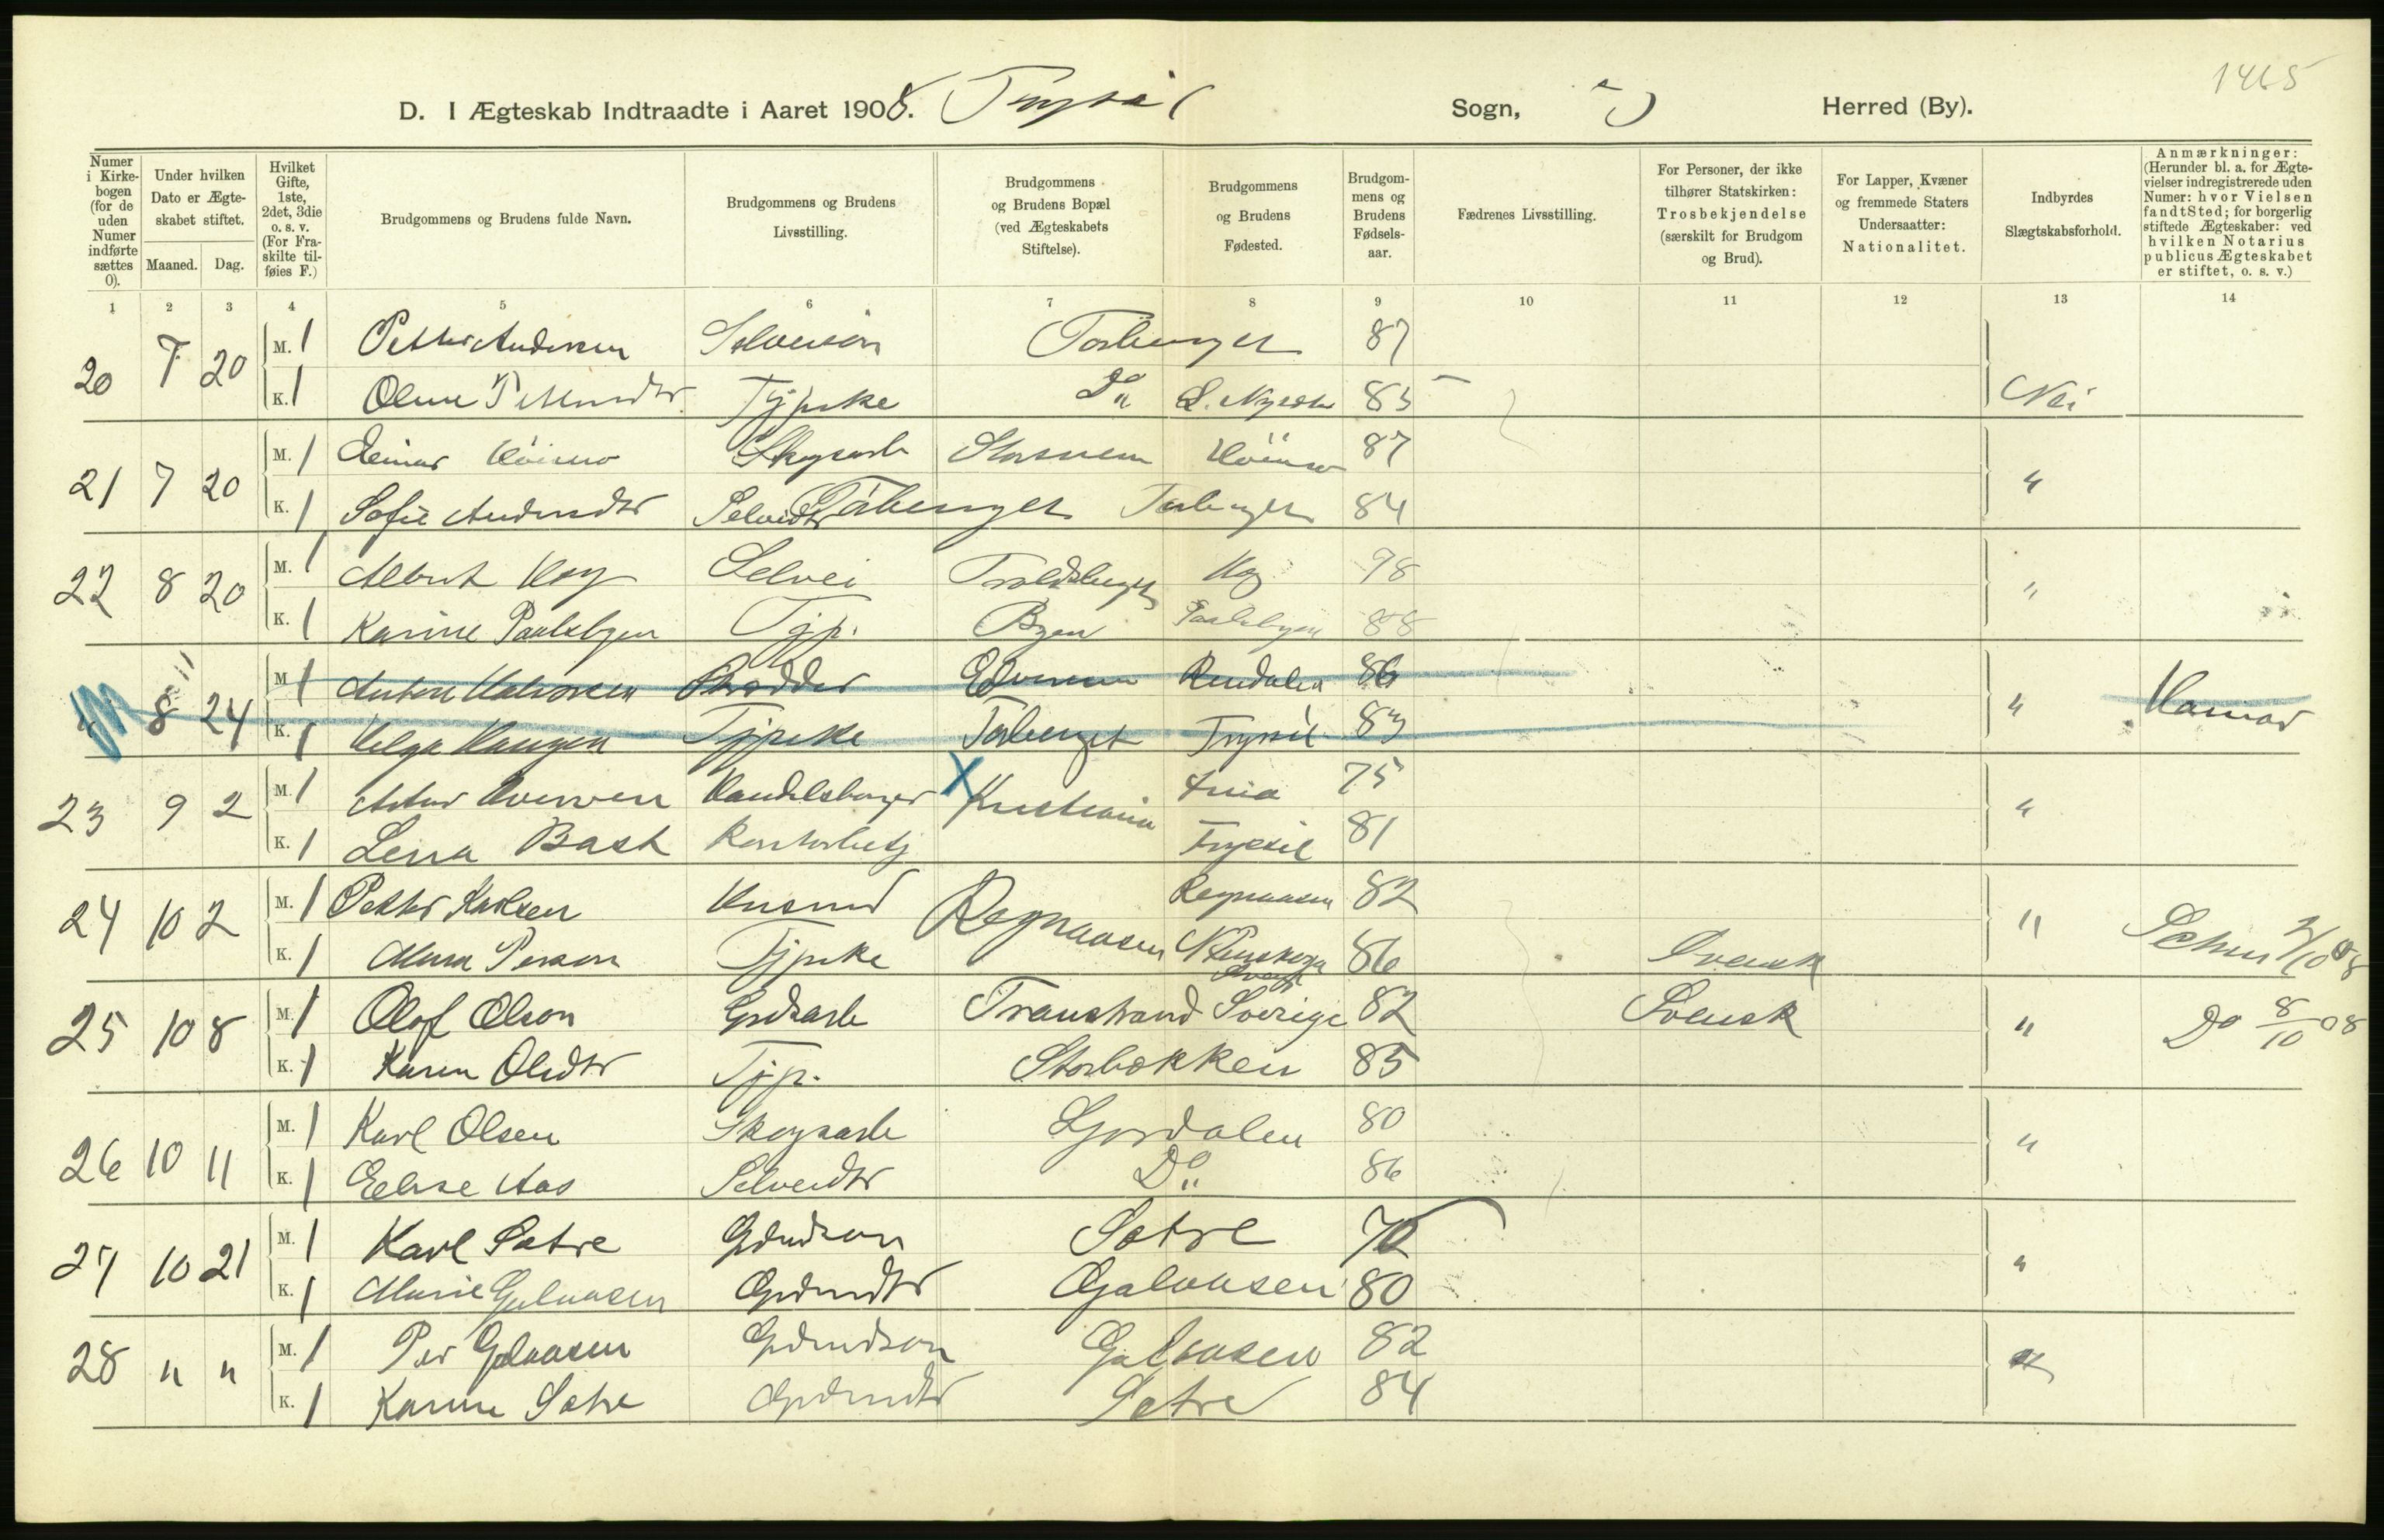 1465
D. I Ægteskab Indtraadte i Aaret 1908. Trysil Sogn, Herred (By).
Numer i Kirke-bogen (for de uden Numer indførte sættes 0).
Under hvilken Dato er Ægte-skabet stiftet.
Maaned. Dag.
Hvilket Gifte, 1ste, 2det, 3die o. s. v. (For Fra-skilte til-føies F.)
Brudgommens og Brudens fulde Navn.
Brudgommens og Brudens Livsstilling.
Brudgommens og Brudens Bopæl (ved Ægteskabets Stiftelse).
Brudgommens og Brudens Fødested.
Brudgom-mens og Brudens Fødsels-aar.
Fædrenes Livsstilling.
For Personer, der ikke tilhører Statskirken: Trosbekjendelse (særskilt for Brudgom og Brud).
For Lapper, Kvæner og fremmede Staters Undersaatter: Nationalitet.
Indbyrdes Slægtskabsforhold.
Anmærkninger: (Herunder bl. a. for Ægte-vielser indregistrerede uden Numer: hvor Vielsen fandt Sted; for borgerlig stiftede Ægteskaber: ved hvilken Notarius publicus Ægteskabet er stiftet, o. s. v.)
1 2 3 4 5 6 7 8 9 10 11 12 13 14
20 7 20 M. 1 Petter Andersen Selveiersön Torberget 87
K. 1 Tjpske Do 85 Nei
21 7 20 M. 1 Einar Skogsarb 87 "
K. 1 Sofie Andersdtr Selveidtr Törberget Torberget 84
22 8 20 M. 1 Albert Selvei 78 "
K. 1 Karine Paalsbyen Tjp. Byen Paalsbyen 88
" 8 24 M. 1 Anton Halvorsen Skrædder Elverum Rendalen 86 " Hamar
K. 1 Helga Haugen Tjpske Torberget Trysil 83
23 9 2 M. 1 Handelsborger Kristiania 75 "
K. 1 Lena Bask Trysil 81
24 10 2 M. 1 Petter Karlsen Husmd Regnaasen Regnaasen 82 " 2/10 08
K. 1 Person Tjpske 86 Svensk
25 10 8 M. 1 Olof Olson Grdsarb Transtrand Sverige 82 Svensk " Do 8/10 08
K. 1 Karen Olsdtr Tjp. Storbækken 85
26 10 11 M. 1 Karl Olsen Skogsarb Ljordalen 80 "
K. 1 Elise Aas Selveidtr Do 86
27 10 21 M. 1 Karl Sætre Gdmdson Sætre 72 "
K. 1 Marie Galaasen Grdmdtr Galaasen 80
28 " " M. 1 Per Galaasen Gdmdson Galaasen 82 "
K. 1 Karine Sætre Grdmdtr Sætre 84